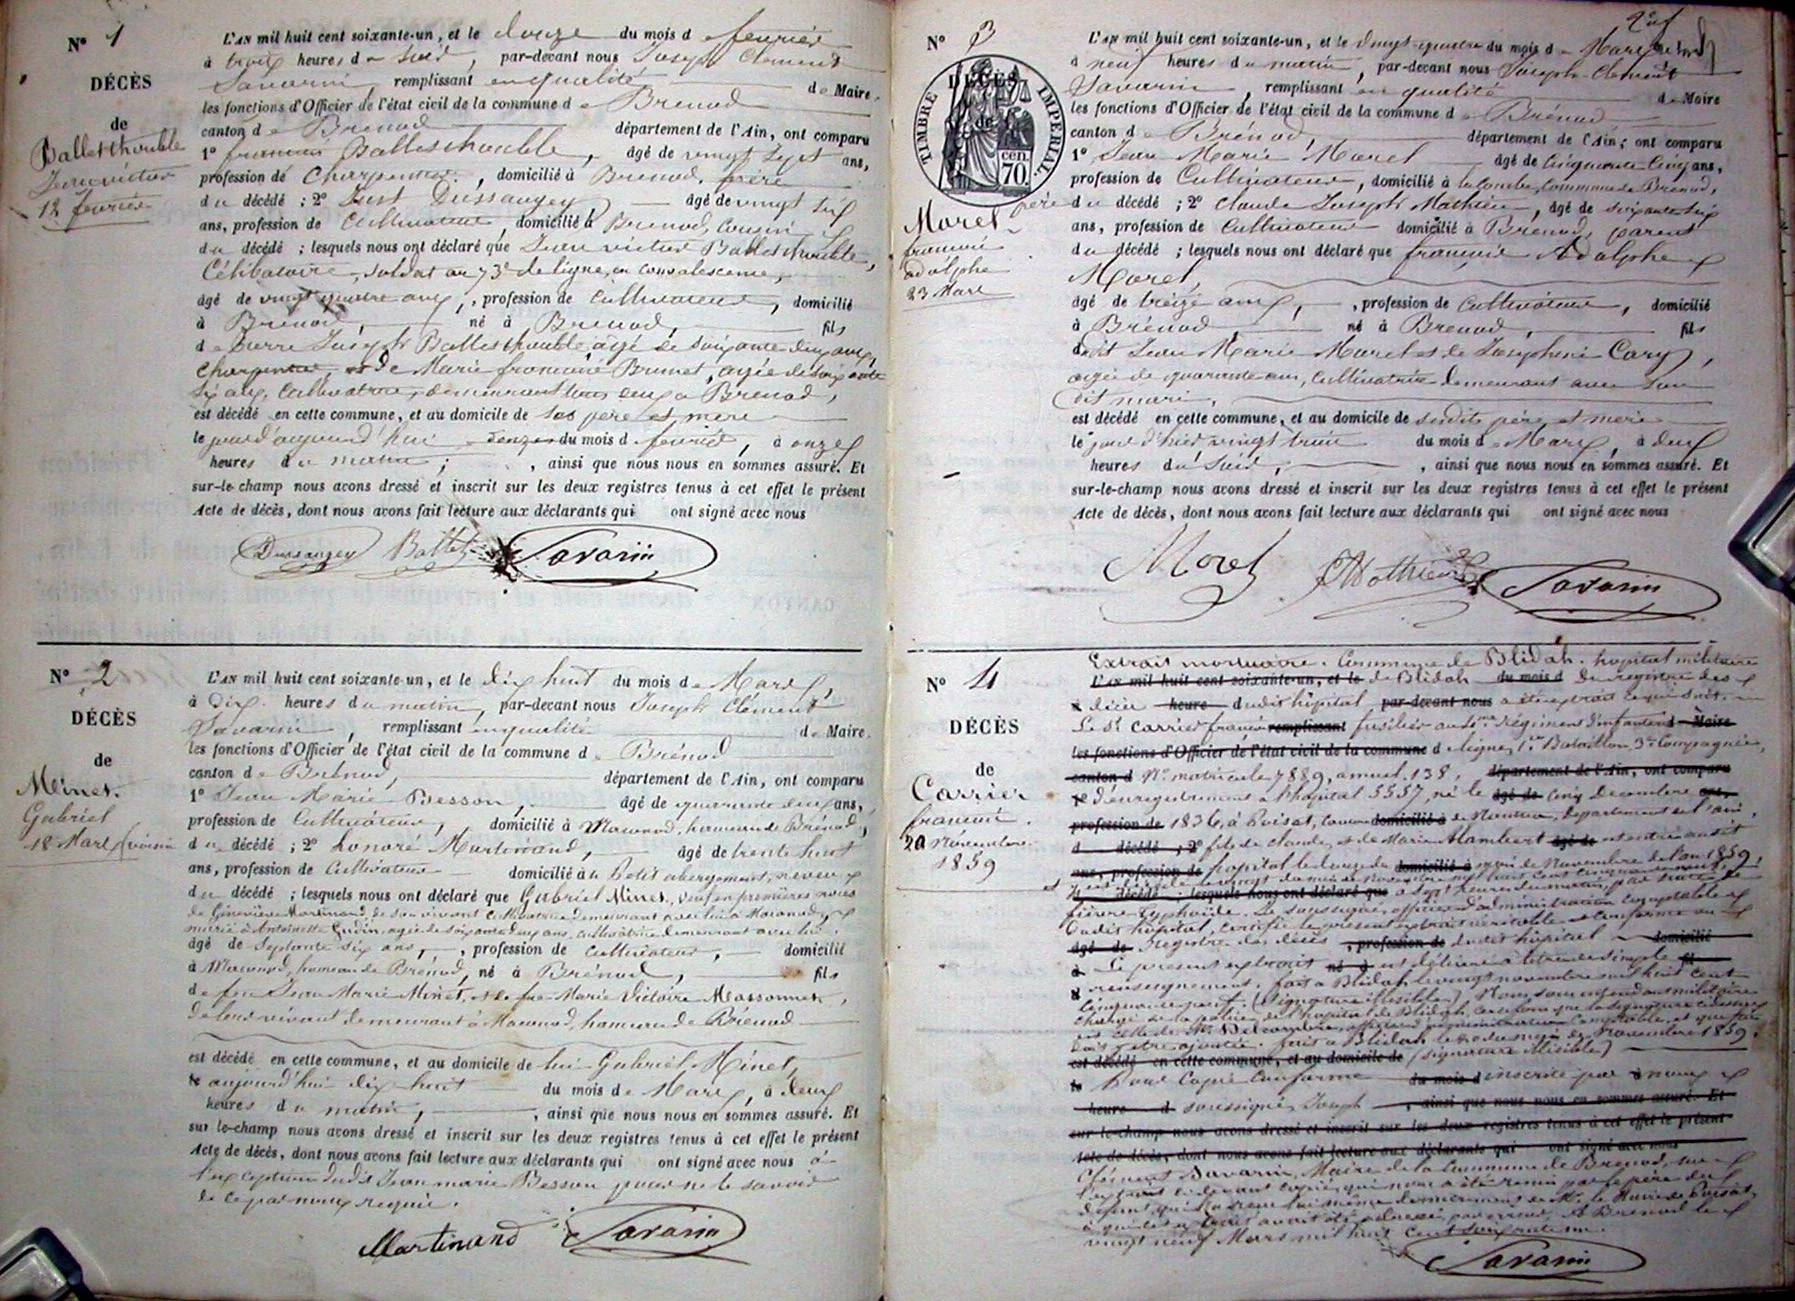 N° 1
DÉCÈS
de
Ballesthouble
Jean victor
12 février
L'AN mil huit cent soixante-un, et le douze du mois de février
à trois heures du soir, par-devant nous Joseph Clément
Savarin, remplissant en qualité de Maire,
les fonctions d'Officier de l'état civil de la commune de Brenod
canton de Brenod département de l'Ain, ont comparu
1° françois Ballesthouble, âgé de vingt sept ans,
profession de Charpentier, domicilié à Brenod, frère
du décédé ; 2° Just Dussangey, âgé de vingt six
ans, profession de Cultivateur, domicilié à Brenod, Cousin
du décédé ; lesquels nous ont déclaré que Jean victor Ballesthouble,
Célibataire, soldat au 73e de ligne, en convalescence,
âgé de vingt quatre ans, profession de Cultivateur, domicilié
à Brenod, né à Brenod, fils
de Pierre Joseph Ballesthouble, âgé de soixante deux ans,
Charpentier, et de Marie françoise Brunet, agée de soixante
six ans, Cultivatrice, demeurant tous deux à Brenod,
est décédé en cette commune, et au domicile de ses père et mère
le jour d'aujourd'hui douze du mois de février, à onze
heures du matin ; , ainsi que nous nous en sommes assuré. Et
sur-le-champ nous avons dressé et inscrit sur les deux registres tenus à cet effet le présent
Acte de décès, dont nous avons fait lecture aux déclarants qui ont signé avec nous
Dussangey Ballet Savarin
N° 2
DÉCÈS
de
Minet
Gabriel
18 Mars
L'AN mil huit cent soixante-un, et le dix huit du mois de Mars,
à Dix heures du matin, par-devant nous Joseph Clément
Savarin, remplissant en qualité de Maire,
les fonctions d'Officier de l'état civil de la commune de Brénod
canton de Brénod, département de l'Ain, ont comparu
1° Jean Marie Besson, âgé de quarante deux ans,
profession de Cultivateur, domicilié à Macconod, hameau de Brénod,
du décédé ; 2° honoré Martinand, âgé de trente huit
ans, profession de Cultivateur domicilié au Petit abergement, neveu
du décédé ; lesquels nous ont déclaré que Gabriel Minet, veuf en premières noces
de Geneviève Martinand, de son vivant Cultivatrice demeurant avec lui à Macconod, et
marié à Antoinette Gudin, agée de soixante deux ans, cultivatrice demeurant avec lui.
âgé de Septante six ans, profession de Cultivateur, domicilié
à Macconod, hameau de Brénod, né à Brénod, fils
de feu Jean Marie Minet, et de fue Marie Victoire Massonnet,
de leur vivant demeurant à Macconod, hameau de Brénod
est décédé en cette commune, et au domicile de lui Gabriel Minet,
le aujourd'hui dix huit du mois de Mars, à deux
heures du matin, , ainsi que nous nous en sommes assuré. Et
sur le-champ nous avons dressé et inscrit sur les deux registres tenus à cet effet le présent
Acte de décès, dont nous avons fait lecture aux déclarants qui ont signé avec nous à
l'exception dudit Jean marie Besson pour ne le savoir
de ce par nous requis.
Martinand Savarin
N° 3
DÉCÈS
de
TIMBRE IMPERIAL
70 cen.
Morel
françois
adolphe
23 Mars
L'AN mil huit cent soixante-un, et le vingt-quatre du mois de Mars
à neuf heures du matin, par-devant nous Joseph Clément
Savarin, remplissant en qualité de Maire
les fonctions d'Officier de l'état civil de la commune de Brénod
canton de Brénod, département de l'Ain, ont comparu
1° Jean Marie Morel âgé de Cinquante Cinq ans,
profession de Cultivateur, domicilié à la Combe, Commune de Brenod,
père du décédé ; 2° Claude Joseph Mathieu, âgé de soixante six
ans, profession de Cultivateur domicilié à Brenod, parent
du décédé ; lesquels nous ont déclaré que françois Adolphe
Morel,
âgé de treize ans, , profession de Cultivateur, domicilié
à Brénod, né à Brenod, fils
dudit Jean Marie Morel et de Josephine Carry,
agée de quarante ans, Cultivatrice demeurant avec son
dit mari,
est décédé en cette commune, et au domicile de sesdits père et mère
le jour d'hier vingt trois du mois de Mars, à deux
heures du soir, , ainsi que nous nous en sommes assuré. Et
sur-le-champ nous avons dressé et inscrit sur les deux registres tenus à cet effet le présent
Acte de décès, dont nous avons fait lecture aux déclarants qui ont signé avec nous
Morel Mathieu Savarin
N° 4
DÉCÈS
de
Carrier
françois
20 Novembre
1859
Extrait mortuaire. Commune de Blidah. hopital militaire
L'AN mil huit cent soixante-un, et le de Blidah du mois d Du registre des
à décès heure dudit hôpital par-devant nous a été extrait ce qui suit.
Le Sr Carrier françois remplissant fusilier au régiment d'infanterie Maire
les fonctions d'Officier de l'état civil de la commune d de ligne, 1er Bataillon 3e Compagnie,
canton d N° matricule 7889, annuel 138, département de l'Ain, ont comparu
1° d'enregistrement à l'hôpital 5557, né le âgé de cinq Decembre ans,
profession de 1836, à Poisat, Canton domicilié à de Nantua, departement de l'ain,
d décédé ; 2° fils de claude, et de Marie Alambert âgé de est entré audit
ans, profession de hopital le douze du domicilié à mois de Novembre de l'an 1859,
d décédé ; lesquels nous ont déclaré que à sept heures du matin, par suite de
fièvre typhoïde. Le soussigné, officier d'administration Comptable
dudit hôpital, certifie le present extrait véritable et Conforme au
âgé de registre des décès , profession de dudit hôpital domicilié
à Le present extrait né à est délivré à titre de simple fils
d renseignement. fait à Blidah le vingt novembre mil huit cent
Cinquante neuf. (Signature illisible) Nous, sous intendant militaire
chargé de la police de l'hopital de Blidah, certifions que la signature ci dessus
est celle de Mr. officier d'administration Comptable, et que foi
doit y être ajoutée. fait à Blidah le novembre 1859.
est décédé en cette commune, et au domicile de (signature illisible)
le Pour Copie Conforme du mois d inscrite par à nous
heure d soussigné, Joseph , ainsi que nous nous en sommes assuré. Et
sur-le-champ nous avons dressé et inscrit sur les deux registres tenus à cet effet le présent
Acte de décès, dont nous avons fait lecture aux déclarants qui ont signé avec nous
Clément Savarin, Maire de la Commune de Brenod, sur
l'extrait ci devant copié, qui nous a été remis par le père du
défunt, qui l'a reçu lui même de Mr. le Maire de Poisat,
à qui cet extrait avait été adressé par erreur. A Brenod le
vingt neuf Mars mil huit Cent soixante un.
Savarin